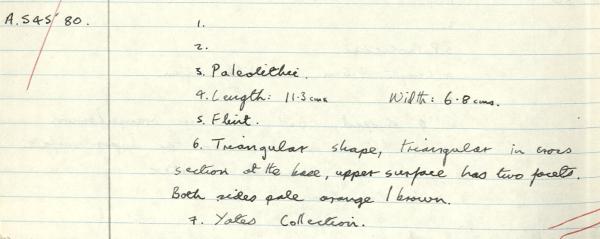 A. S&S' 80. 1.
2.
3. Paleolithic.
4. Length: 11.3 cms Width: 6.8 cms.
5. Flint.
6. Triangular shape, triangular in cross
section at the base, upper surface has two facets.
Both sides pale orange / brown.
7. Yates Collection.